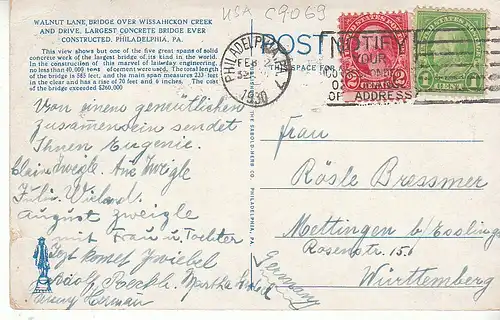 USA C9069
WALNUT LANE BRIDGE OVER WISSAHICKON CREEK
AND DRIVE, LARGEST CONCRETE BRIDGE EVER
CONSTRUCTED, PHILADELPHIA, PA.
This view shows but one of the five great spans of solid
concrete work of the largest bridge of its kind in the world.
In the construction of this marvel of latterday engineering,
no less than 40,000 tons of cement were used. The total length
of the bridge is 585 feet, and the main span measures 233 feet
in the clear and has a rise of 70 feet and 6 inches. The cost
of the bridge exceeded $260,000
POST
THIS SPACE FOR
PHILADELPHIA, PA.
FEB
1930
NOTIFY
YOUR
CORRESPONDENTS
OF CHANGE
OF ADDRESS
2
CENT
THE SABOLD-HERB CO. PHILADELPHIA, PA.
Von einem gemütlichen
Zusammensein sendet
Ihnen Eugenie.
Zweigle
Wieland
August Zweigle
mit Frau u. Tochter
Zwiebel
Adolf
Martha
Herman
Frau
Rösle Bressmer
Mettingen b/Esslingen
Rosenstr. 156
Württemberg
Germany